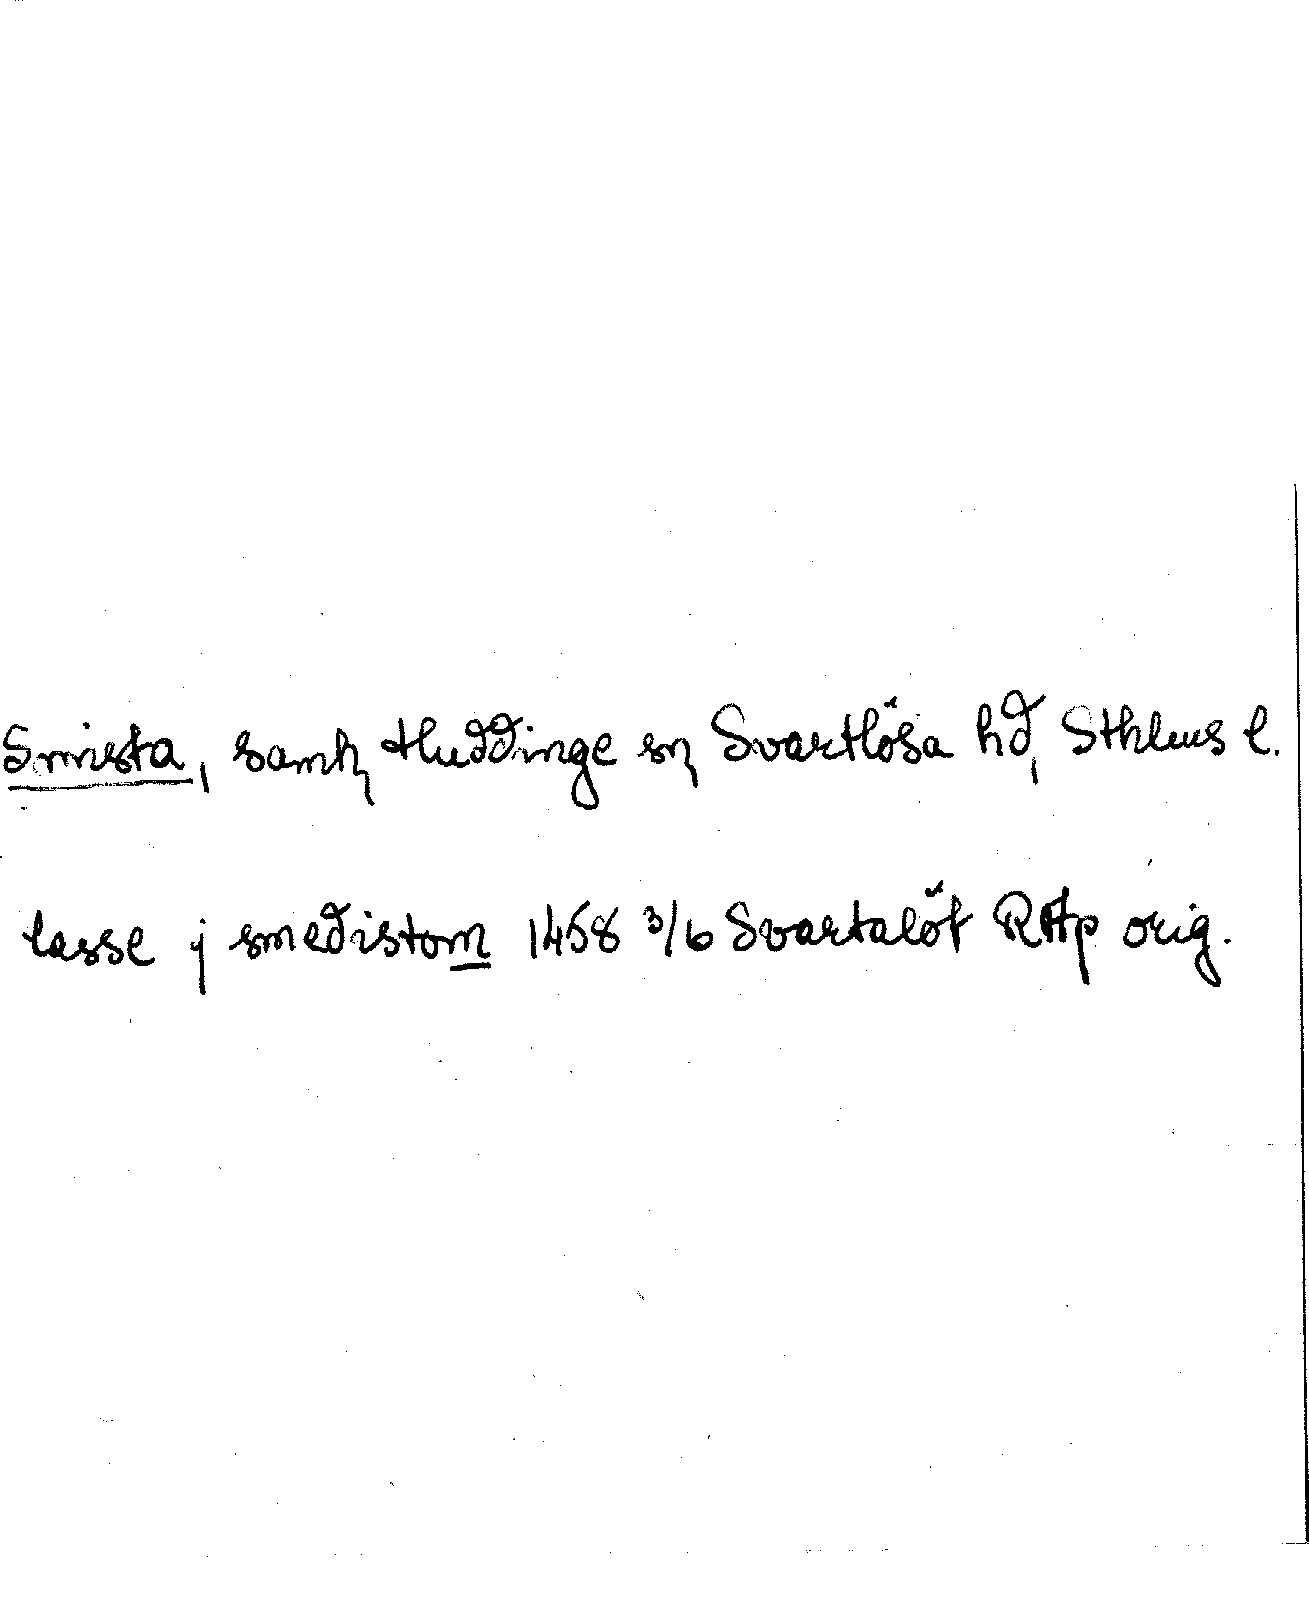 Smista, samh, Huddinge sn, Svartlösa hd, Sthlms l.
lasse j smedistom 1458 3/6 Svartalöt RAp orig.